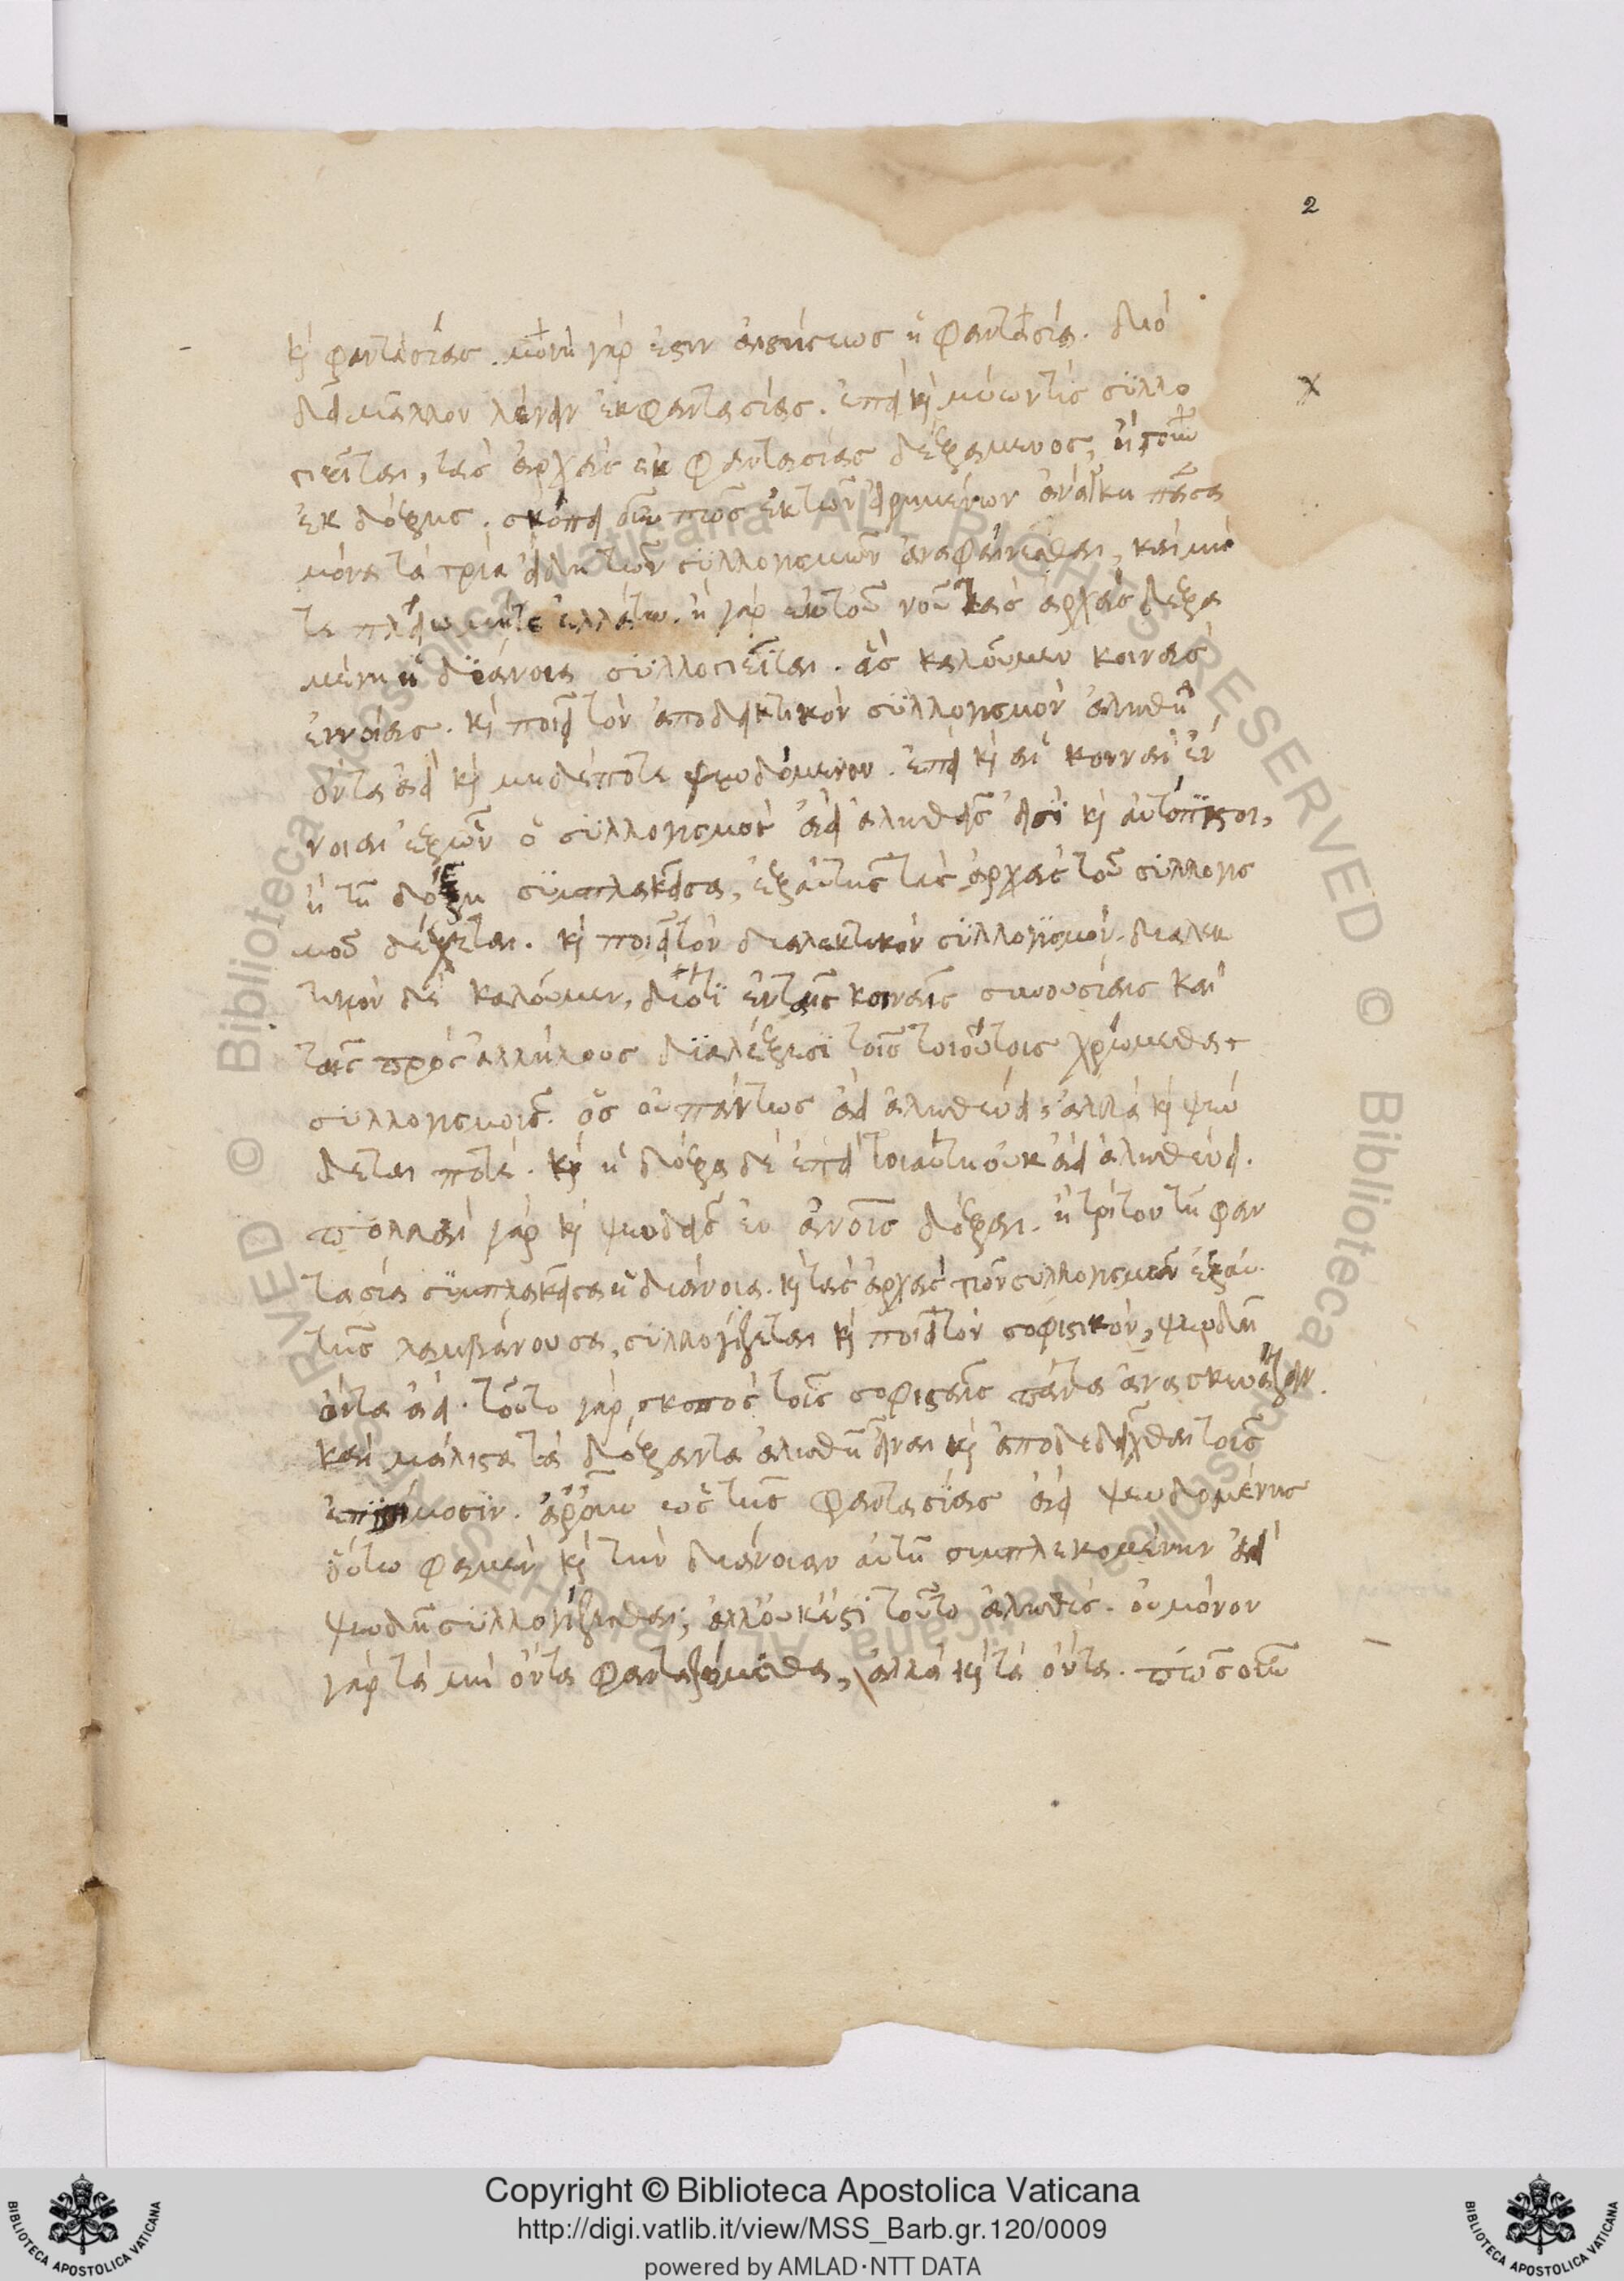 2
καὶ φαντασίας. μονὴ γάρ ἐστιν αἰσθήσεως ἡ φαντασία. διό
δεῖ μᾶλλον λέγειν ἐκ φαντασίας. ἐπεὶ καὶ μύων τίς συλλο
γιεῖται, τὰς ἀρχὰς ἐκ φαντασίας δεξάμενος, ἤγουν
ἐκ δόξης. σκόπει οὖν πῶς ἐκ τῶν εἰρημένων ἀνάγκη πᾶσα
μόνα τὰ τρία εἴδη τῶν συλλογισμῶν ἀναφαίνεσθαι, καὶ μή
τε πλείω μήτε ἐλλάττω. ἢ γὰρ ἐκ τοῦ νοῦ τὰς ἀρχὰς δεξα
μένη ἡ διάνοια συλλογιεῖται. ἃς καλοῦμεν κοινὰς
ἐννοίας. καὶ ποιεῖ τὸν ἀποδεικτικὸν συλλογισμὸν ἀληθῆ
ὄντα ἀεὶ καὶ μηδέποτε ψευδόμενον. ἐπεὶ καὶ αἱ κοιναὶ ἔν
νοιαι ἐξ ὧν ὁ συλλογισμὸς ἀεὶ ἀληθεῖς εἰσὶ καὶ αὐτόπιστοι,
ἢ τῇ δόξῃ συμπλακεῖσα, ἐξ αὐτῆς τὰς ἀρχὰς τοῦ συλλογισ
μοῦ δέχεται. καὶ ποιεῖ τὸν διαλεκτικὸν συλλογισμόν. διαλεκ
τικὸν δὲ καλοῦμεν, διότι ἐν ταῖς κοιναῖς συνουσίαις καὶ
ταῖς πρὸς ἀλλήλους διαλέξεσι τοῖς τοιούτοις χρώμεθα
συλλογισμοῖς. ὃς οὐ πάντως ἀεὶ ἀληθεύει, ἀλλὰ καὶ ψεύ
δεται ποτέ. καὶ ἡ δόξα δὲ ἐπεὶ τοιαύτη οὐκ ἀεὶ ἀληθεύει.
πολλαὶ γὰρ καὶ ψευδεῖς ἐν ἀνοις δόξαι. ἢ τρίτον τῇ φαν
τασία συμπλακεῖσα ἡ διάνοια. καὶ τὰς ἀρχὰς τῶν συλλογισμῶν ἐξ αὐ
τῆς λαμβάνουσα, συλλογίζεται καὶ ποιεῖ τὸν σοφιστικόν, ψευδῆ
ὄντα ἀεί. τοῦτο γὰρ σκοπὸς τοῖς σοφισταῖς πάντα ἀνασκευάζειν.
καὶ μάλιστα τὰ δόξαντα ἀληθῆ εἶναι καὶ ἀποδεδεῖχθαι τοῖς
ἐπιστήμοσιν. ἆρ' οὖν ὡς τῆς φαντασίας ἀεὶ ψευδομένης
οὕτω φαμὲν καὶ τὴν διάνοιαν αὐτῇ συμπλεκομένην ἀεὶ
ψευδῆ συλλογίζεσθαι; ἀλλ' οὐκ ἔστι τοῦτο ἀληθές. οὐ μόνον
γὰρ τὰ μὴ ὄντα φανταζόμεθα, ἀλλὰ καὶ τὰ ὄντα. πῶς οὖν
Copyright © Biblioteca Apostolica Vaticana
http://digi.vatlib.it/view/MSS_Barb.gr.120/0009
powered by AMLAD·NTT DATA